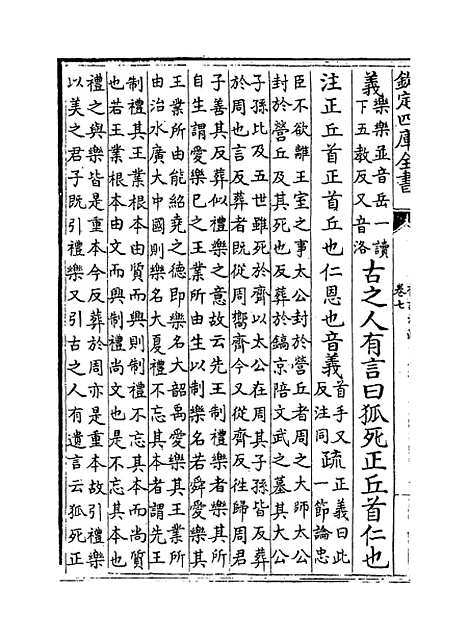 欽定四庫全書
卷七
義樂樂並音岳一讀下五教反又音洛古之人有言曰狐死正丘首仁也
注正丘首正丘也仁恩也音義首手又反注同疏正義曰此一節論忠
臣不欲離王室之事太公封於營丘者周之大師太公
封於營丘及其死也反葬於鎬京陪文武之墓其大公
子孫比及五世雖死於齊以太公在周其子孫皆反葬
於周也言反葬者既從周嚮齊今又從齊反往歸周君
子善其反葬似禮樂之意故云先王制禮樂者樂其所
自生謂愛樂已之王業所由生以制樂名若舜愛樂其
王業所由能紹堯之德即樂名大韶禹愛樂其王業所
由治水廣大中國則樂名大夏禮不忘其本者謂先王
制禮其王業根本由質而興則制禮不忘其本而尚質
也若王業根本由文而興制禮尚文也是不忘其本也
禮之與樂皆是重本今反葬於周亦是重本故引禮樂
以美之君子既引禮樂又引古之人有遺言云狐死正